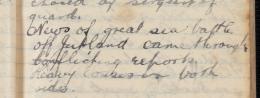 closed by sergeant of
guard.
News of great sea battle
off Jutland came through
conflicting reports
Heavy losses on both
sides.